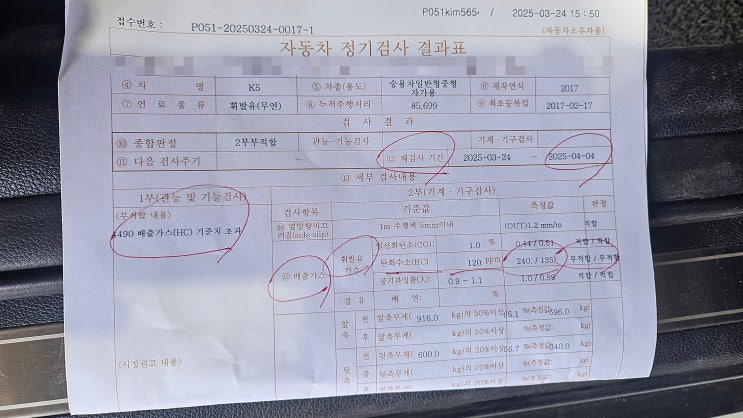 P051kim565 / 2025-03-24 15:50
접수번호 : P051-20250324-0017-1
(자동차소유자용)
자동차 정기검사 결과표
④ 차 명 K5 ⑤ 차종(용도) 승용차일반형중형 자가용 ⑥ 제작연식 2017
⑦ 연료종류 휘발유(무연) ⑧ 누적주행거리 85,699 ⑨ 최초등록일 2017-02-17
검 사 결 과
⑩ 종합판정 2부부적합 관능·기능검사 기계·기구검사
⑪ 다음 검사주기 ~ ⑫ 재검사 기간 2025-03-24 ~ 2025-04-04
⑬ 세부 검사내용
1부(관능 및 기능검사) 2부(기계·기구검사)
(부적합 내용) 검사항목 기준값 측정값 판정
4490 배출가스(HC) 기준치 초과
⑭ 옆방향미끄러짐(side slip) 1m 주행에 5mm이내 (OUT)1.2 mm/m 적합
⑮ 배출가스 휘발유 가스 일산화탄소(CO): 1.0 % 0.44 / 0.51 적합 / 적합
탄화수소(HC) 120 ppm 240 / 135 부적합 / 부적합
공기과잉률(λ): 0.9 ~ 1.1 1.0 / 0.99 적합 / 적합
경유 매 연: %
앞축 전 앞축무게( 916.0 kg)의 50%이상 %(측정값 596.0 kg)
후 앞축무게( kg)의 50%이상 %(측정값: kg)
뒷축 전 뒷축무게( 600.0 kg)의 20%이상 56.7 %(측정값 340.0 kg)
후 뒷축무게( kg)의 20%이상 %(측정값: kg)
(시정권고 내용)